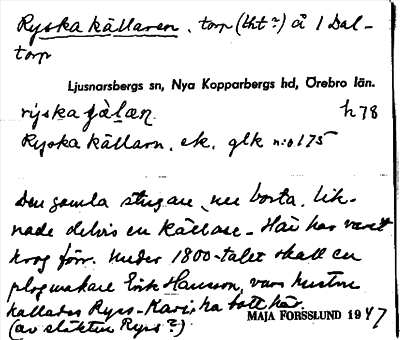 Ryska källaren, torp (lht?) å 1 Dal-
torp
Ljusnarsbergs sn, Nya Kopparbergs hd, Örebro län.
ryska
h 78
Ryska källarn, ek. glk n:o 175
Den gamla stugan, nu borta, lik-
nade delvis en källare - Här har varit
krog förr. Under 1800-talet skall en
plogmakare Erik Hansson, vars hustru
kallades Ryss-Kari, ha bott här.
(av släkten Ryss?)
MAJA FORSSLUND 1947